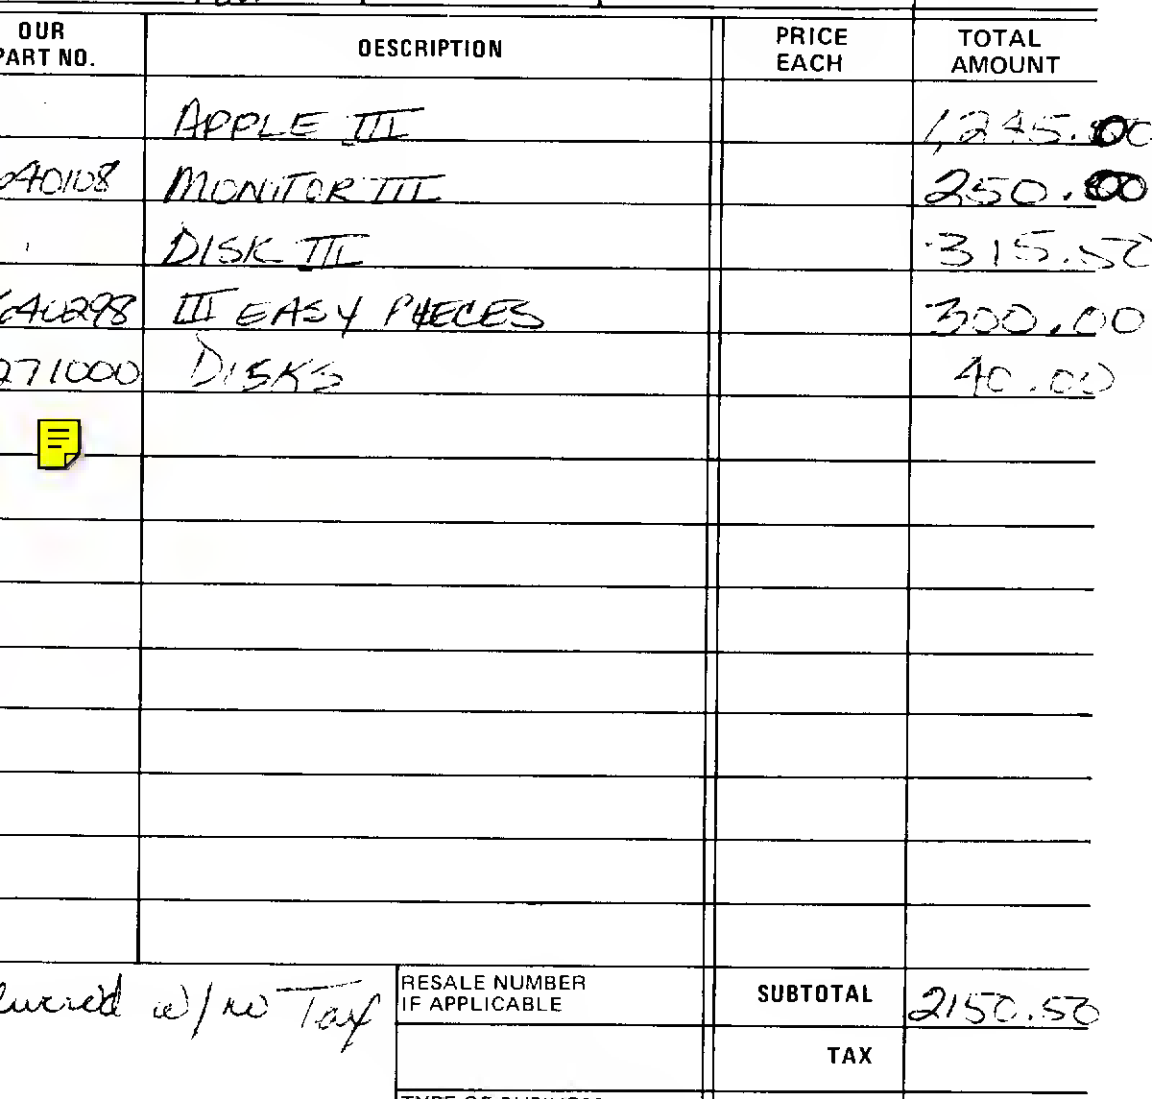 OUR PART NO. DESCRIPTION PRICE EACH TOTAL AMOUNT
APPLE III 1,245.00
040108 MONITOR III 250.00
DISK III 315.50
640298 III EASY PIECES 300.00
271000 DISKS 40.00
w/no Tax RESALE NUMBER IF APPLICABLE SUBTOTAL 2150.50
TAX